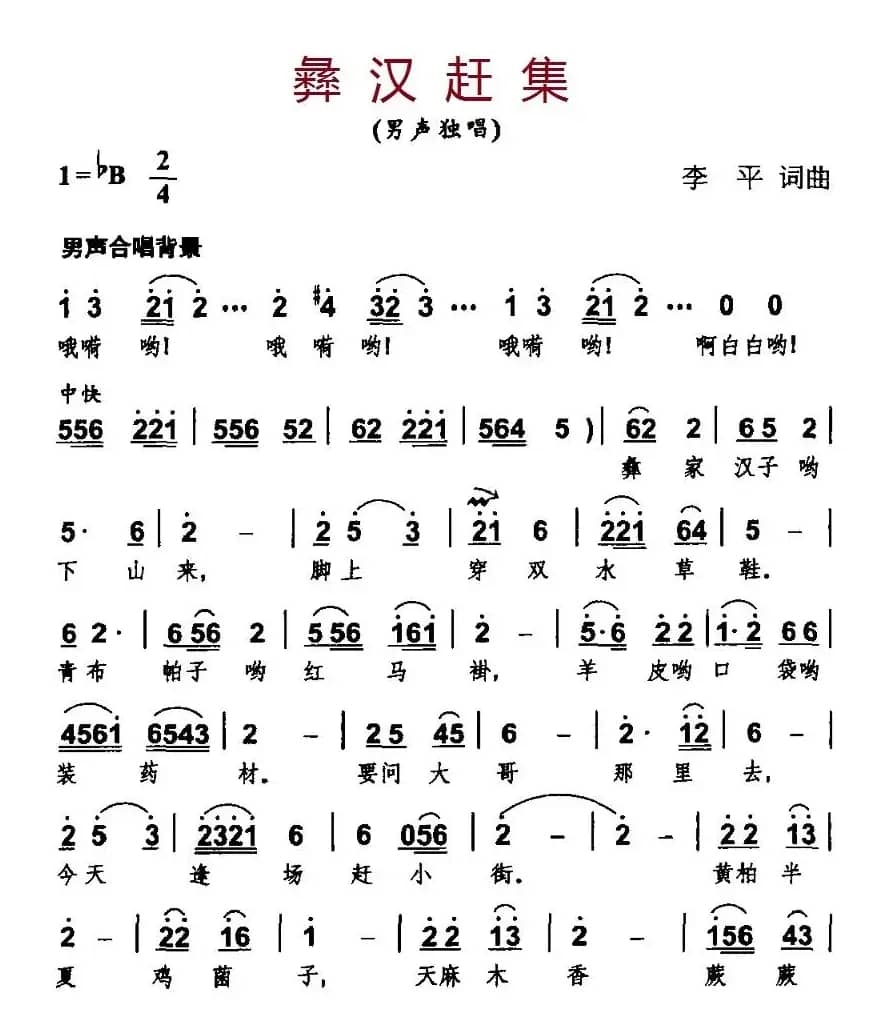 彝汉赶集
(男声独唱)
1=♭B 2/4
李 平 词曲
男声合唱背景
1 3 21 2 ··· 2 #4 32 3 ··· 1 3 21 2 ··· 0 0
哦嗬 哟! 哦 嗬 哟! 哦嗬 哟! 啊白白哟!
中快
556 221 | 556 52 | 62 221 | 564 5 ) | 62 2 | 65 2 |
彝 家 汉子 哟
5· 6 | 2 – | 2 5 3 | 21 6 | 221 64 | 5 – |
下 山 来, 脚上 穿 双 水 草 鞋.
6 2· | 656 2 | 556 161 | 2 – | 5·6 22 | 1·2 66 |
青布 帕子 哟 红 马 褂, 羊 皮哟 口 袋哟
4561 6543 | 2 – | 25 45 | 6 – | 2· 12 | 6 – |
装 药 材. 要问 大 哥 那 里 去,
2 5 3 | 2321 6 | 6 056 | 2 – | 2 – | 22 13 |
今天 逢 场 赶 小 街. 黄柏 半
2 – | 22 16 | 1 – | 22 13 | 2 – | 156 43 |
夏 鸡 菌 子, 天麻 木 香 蕨 蕨